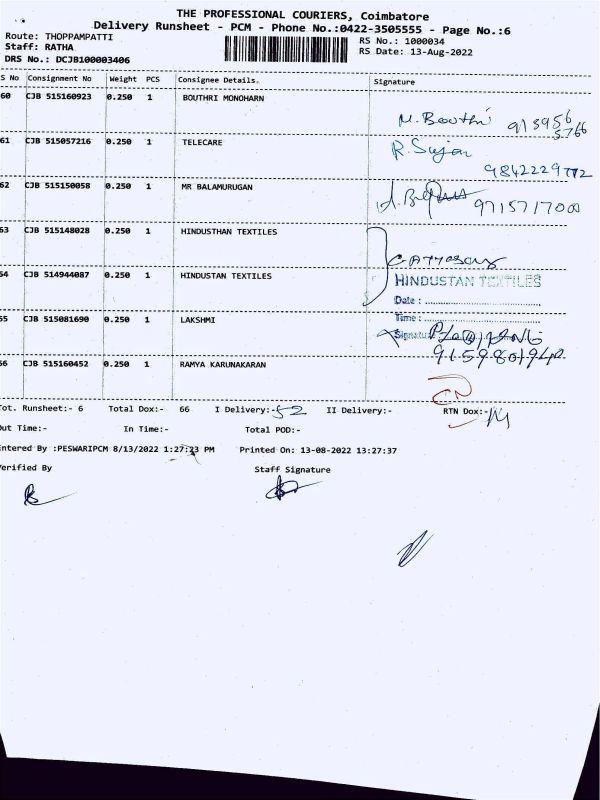 THE PROFESSIONAL COURIERS, Coimbatore
Delivery Runsheet - PCM - Phone No.:0422-3505555 - Page No.:6
Route: THOPPAMPATTI RS No.: 1000034
Staff: RATHA RS Date: 13-Aug-2022
DRS No.: DCJB100003406
S No Consignment No Weight PCS Consignee Details. Signature
60 CJB 515160923 0.250 1 BOUTHRI MONOHARN
M. Bouthri 915956
5766
61 CJB 515057216 0.250 1 TELECARE R. Sujan
9842229772
62 CJB 515150058 0.250 1 MR BALAMURUGAN
9715717000
63 CJB 515148028 0.250 1 HINDUSTHAN TEXTILES
54 CJB 514944087 0.250 1 HINDUSTAN TEXTILES HINDUSTAN TEXTILES
Date :
55 CJB 515081690 0.250 1 LAKSHMI Time :
Signatu
9159801942
56 CJB 515160452 0.250 1 RAMYA KARUNAKARAN
Tot. Runsheet:- 6 Total Dox:- 66 I Delivery:- 52 II Delivery:- RTN Dox:- 14
Out Time:- In Time:- Total POD:-
Entered By :PESWARIPCM 8/13/2022 1:27:23 PM Printed On: 13-08-2022 13:27:37
Verified By Staff Signature